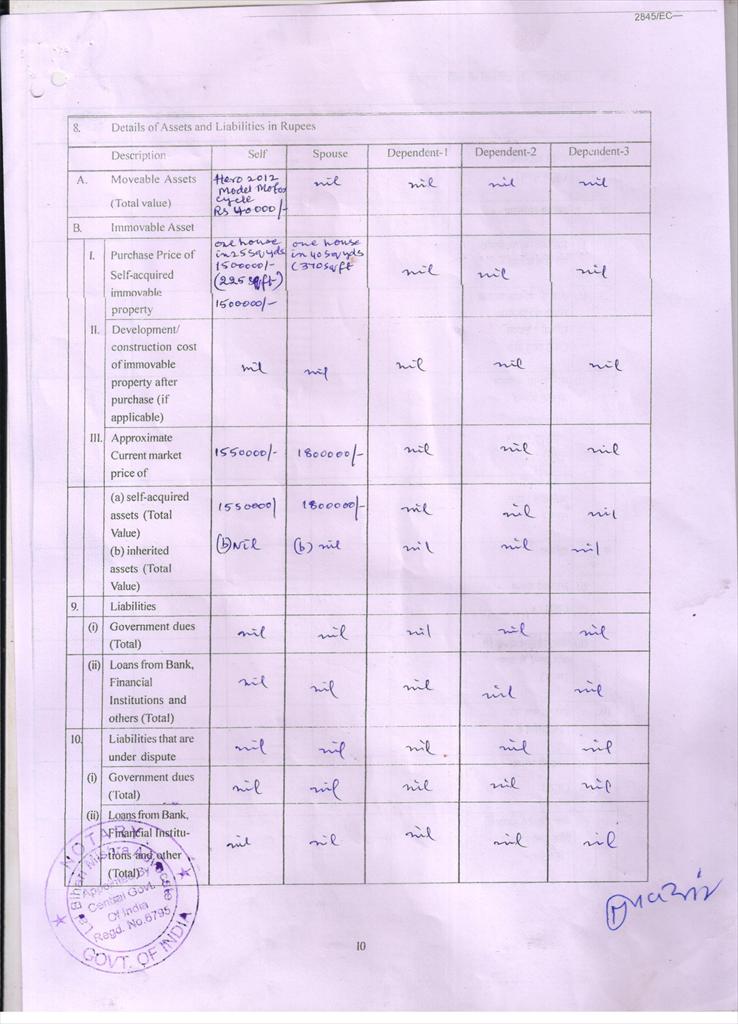 2845/EC—
8. Details of Assets and Liabilities in Rupees
Description Self Spouse Dependent-1 Dependent-2 Dependent-3
A. Moveable Assets
(Total value)
Hero 2012
Model Motor
cycle
Rs 40000/-
nil nil nil nil
B. Immovable Asset
I. Purchase Price of
Self-acquired
immovable
property
one house
in 25 sq yds
1500000/-
(225 sqft)
1500000/-
one house
in 40 sq yds
(370 sqft
nil nil nil
II. Development/
construction cost
of immovable
property after
purchase (if
applicable)
nil nil nil nil nil
III. Approximate
Current market
price of
1550000/- 1800000/- nil nil nil
(a) self-acquired
assets (Total
Value)
1550000/ 1800000/- nil nil nil
(b) inherited
assets (Total
Value)
(b) Nil (b) nil nil nil nil
9. Liabilities
(i) Government dues
(Total)
nil nil nil nil nil
(ii) Loans from Bank,
Financial
Institutions and
others (Total)
nil nil nil nil nil
10. Liabilities that are
under dispute
nil nil nil nil nil
(i) Government dues
(Total)
nil nil nil nil nil
(ii) Loans from Bank,
Financial Institu-
tions and other
(Total)
nil nil nil nil nil
NOTARY
Lal Bihari Mishra Advocate
Appointed By
Central Govt.
Of India
Regd. No.6795
GOVT. OF INDIA
10